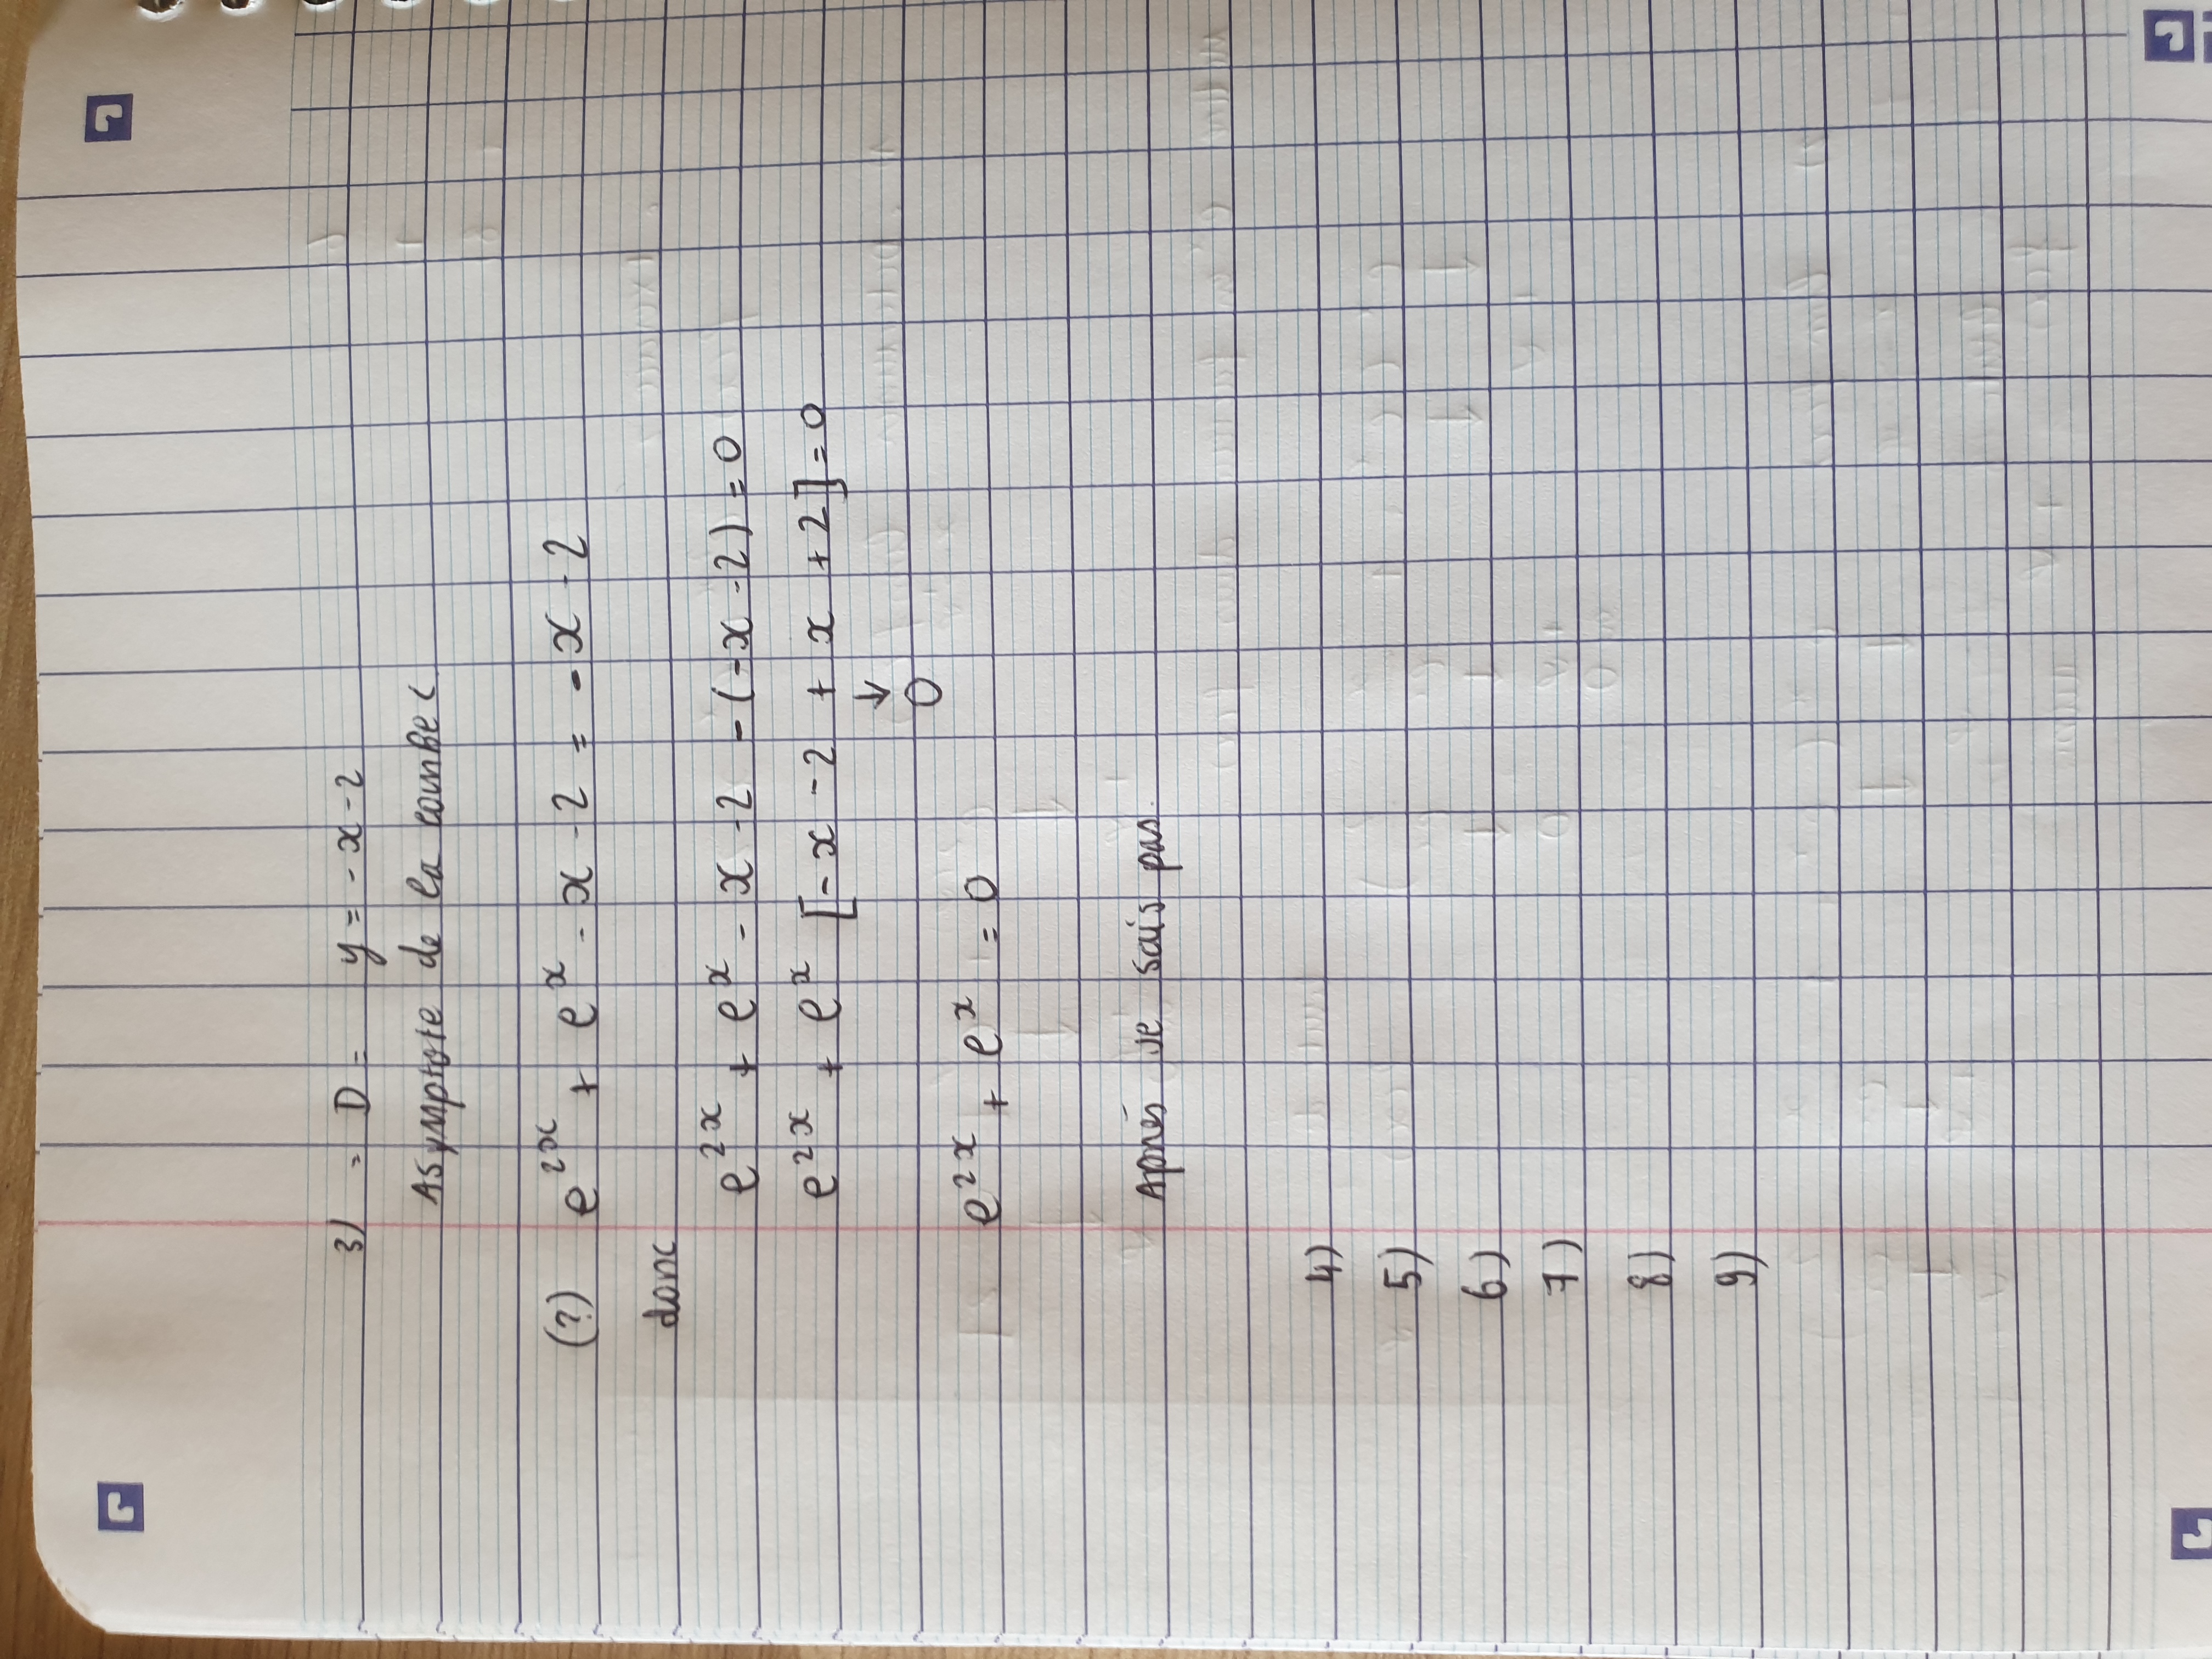 3) = D = y = -x-2
Asymptote de la courbe C
(?) e^2x + e^x - x - 2 = - x - 2
donc
e^2x + e^x - x - 2 - (-x - 2) = 0
e^2x + e^x [-x - 2 + x + 2] = 0
↓
0
e^2x + e^x = 0
Après je sais pas.
4)
5)
6)
7)
8)
9)